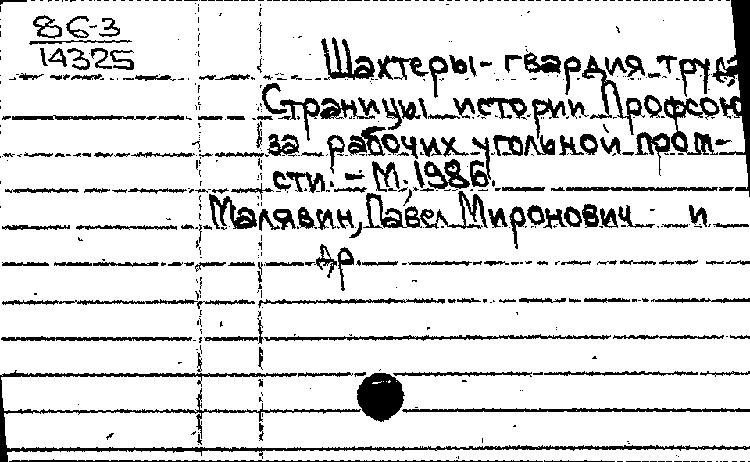 86-3
14325
Шахтеры - гвардия труда
Страницы истории Профсою
за рабочих угольной пром-
сти. - М., 1986.
Малявин, Павел Миронович и
др.